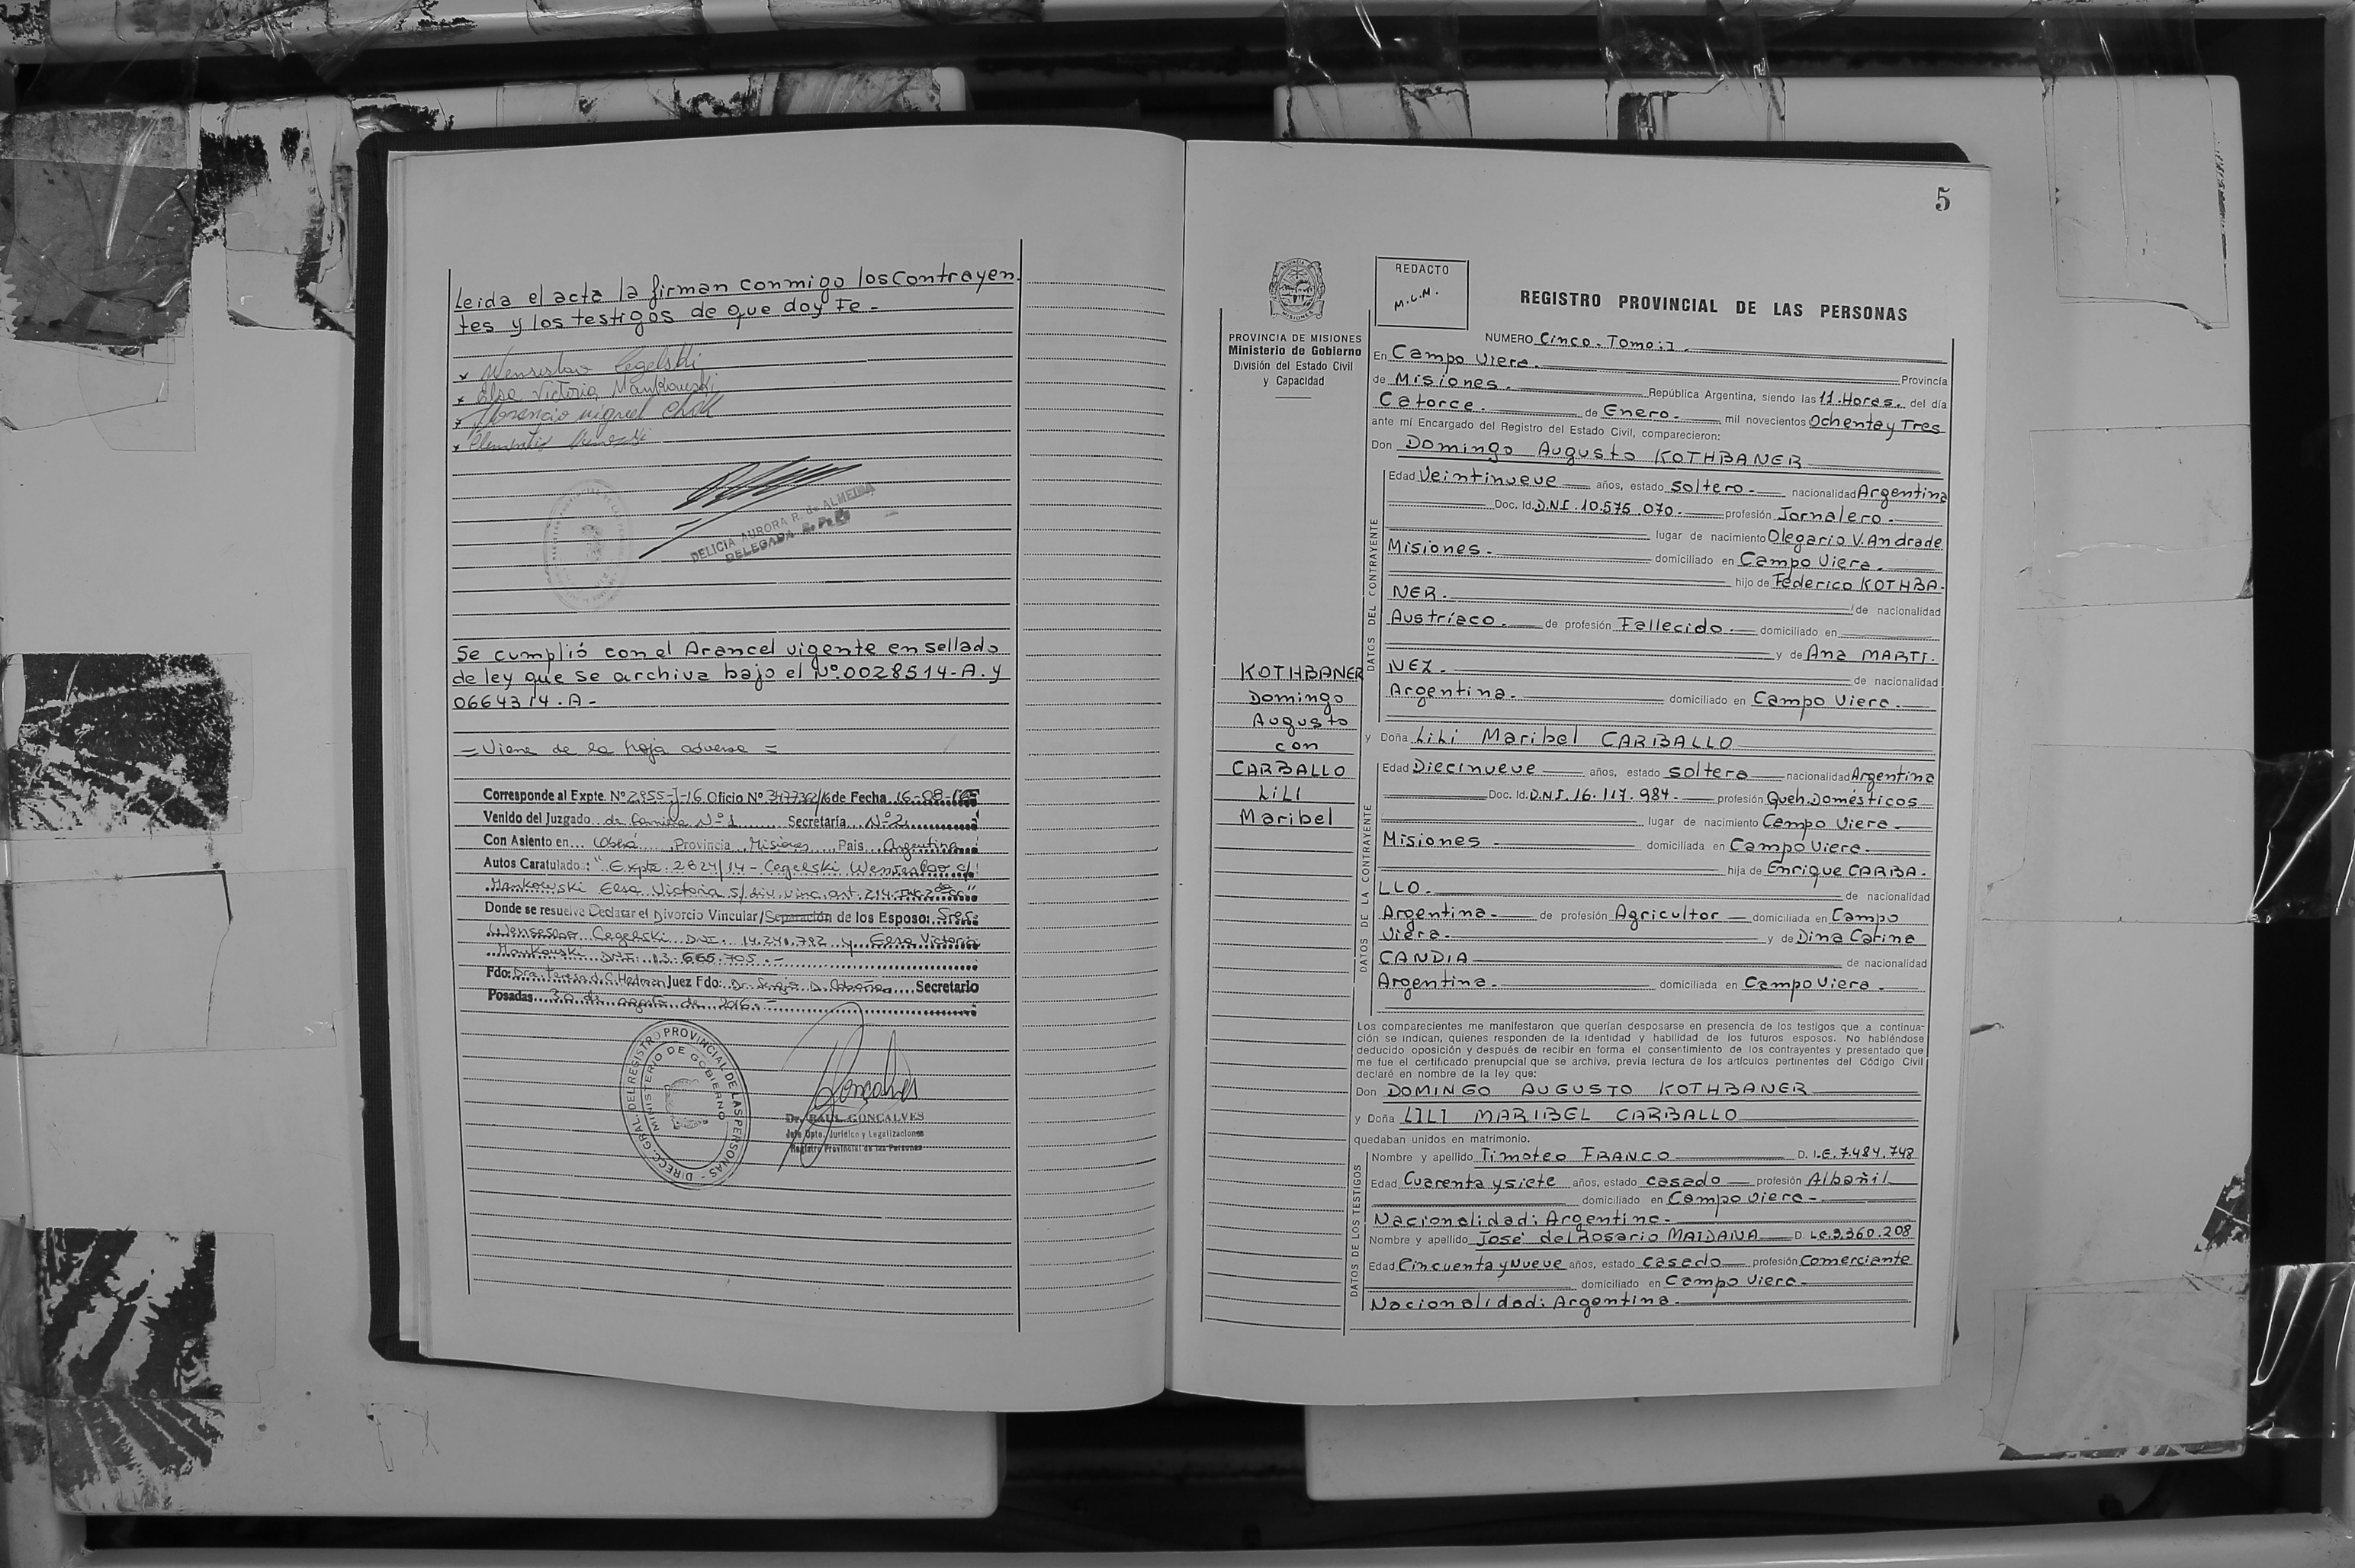 Leida el acta la firman conmigo los Contrayen.
tes y los testigos de que doy Fe.-
x Wenseslao Cegelski
x Elsa Victoria Mankowski
x Florencio Miguel
x
DELICIA AURORA R. de ALMEIDA
DELEGADA R.P.P.
Se cumplió con el Arancel vigente en sellado
de ley que se archiva bajo el Nº.0028514-A. y
0664314.A-
= Viene de la hoja adversa =
Corresponde al Expte. Nº 2955-J-16 Oficio Nº de Fecha 16-08-
Venido del Juzgado de Familia Nº 1 Secretaría Nº 2
Con Asiento en Oberá Provincia Misiones Pais Argentina
Autos Caratulado: "Expte. 2624/14 - Cegelski Wenseslao c/
Mankowski Elsa Victoria s/div. vinc. art. 214
Donde se resuelve Declarar el Divorcio Vincular/Separación de los Esposo: Sres.
Wenseslao Cegelski DNI. 14.240.792 y Elsa Victoria
Mankowski DNI: 13.665.705.-
Fdo: Dra. Teresa Juez Fdo: Dr. Sergio D. Secretario
Posadas 30 de agosto de 2016.-
DIRECC. GRAL. DEL REGISTRO PROVINCIAL DE LAS PERSONAS
MINISTERIO DE GOBIERNO
Goncalves
Dr. RAUL GONCALVES
Jefe Dpto. Jurídico y Legalizaciones
Registro Provincial de las Personas
5
PROVINCIA DE MISIONES
Ministerio de Gobierno
División del Estado Civil
y Capacidad
KOTHBANER
Domingo
Augusto
con
CARBALLO
LiLI
Maribel
REDACTO
M.C.M.
REGISTRO PROVINCIAL DE LAS PERSONAS
NUMERO Cinco. Tomo: I
En Campo Viera. Provincia
de Misiones. República Argentina, siendo las 11.Horas. del día
Catorce. de Enero. mil novecientos Ochenta y Tres
ante mí Encargado del Registro del Estado Civil, comparecieron:
Don Domingo Augusto KOTHBANER
DATOS DEL CONTRAYENTE
Edad Veintinueve años, estado soltero. nacionalidad Argentina
Doc. Id. D.N.I. 10.575.070. profesión Jornalero.
lugar de nacimiento Olegario V. Andrade
Misiones. domiciliado en Campo Viera.
hijo de Federico KOTHBA-
NER. de nacionalidad
Austríaco. de profesión Fallecido. domiciliado en
y de Ana MARTI.
NEZ. de nacionalidad
Argentina. domiciliado en Campo Viera.
y Doña LiLi Maribel CARBALLO
DATOS DE LA CONTRAYENTE
Edad Diecinueve años, estado soltera nacionalidad Argentina
Doc. Id. D.N.I. 16.117.984. profesión Queh. Domésticos
lugar de nacimiento Campo Viera
Misiones domiciliada en Campo Viera.
hija de Enrique CARBA-
LLO. de nacionalidad
Argentina. de profesión Agricultor domiciliada en Campo
Viera. y de Dina Carina
CANDIA de nacionalidad
Argentina. domiciliada en Campo Viera.
Los comparecientes me manifestaron que querían desposarse en presencia de los testigos que a continua-
ción se indican, quienes responden de la identidad y habilidad de los futuros esposos. No habiéndose
deducido oposición y después de recibir en forma el consentimiento de los contrayentes y presentado que
me fue el certificado prenupcial que se archiva, previa lectura de los artículos pertinentes del Código Civil
declaré en nombre de la ley que:
Don DOMINGO AUGUSTO KOTHBANER
y Doña LILI MARIBEL CARBALLO
quedaban unidos en matrimonio.
DATOS DE LOS TESTIGOS
Nombre y apellido Timoteo FRANCO D. I.E. 7.484.748
Edad Cuarenta y siete años, estado casado profesión Albañil
domiciliado en Campo Viera
Nacionalidad: Argentina.
Nombre y apellido José del Rosario MAIDANA D. L.E. 3.360.208
Edad Cincuenta y Nueve años, estado casado profesión Comerciante
domiciliado en Campo Viera
Nacionalidad: Argentina.